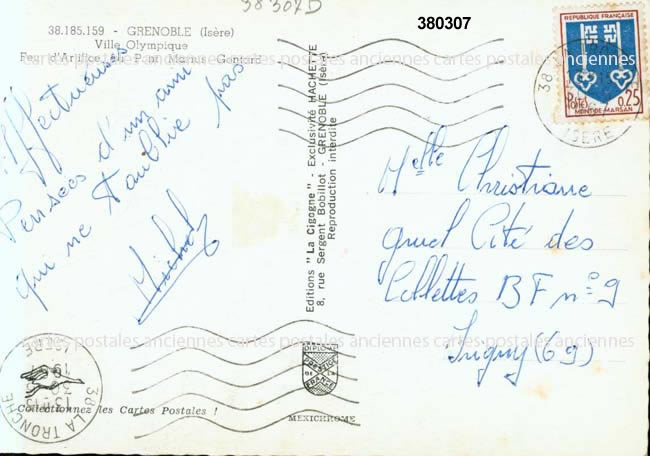 38 307D
380307
38.185.159 - GRENOBLE (Isère)
Ville Olympique
Feu d'Artifice au Parc
Affectueuses
Pensées d'un ami
qui ne t'oublie pas
Michel
Editions "La Cigogne" - Exclusivité HACHETTE
8, rue Sergent Bobillot - GRENOBLE (Isère)
Reproduction interdite
REPUBLIQUE FRANÇAISE
POSTES
0.25
MONT-DE-MARSAN
38
ISERE
Melle Christiane
Cité des
BF n° 9
(69)
cartes postales anciennes cartes postales anciennes cartes postales anciennes
38 LA TRONCHE
ISERE
Collectionnez les Cartes Postales !
DIPLOME
PRESTIGE
DE LA
FRANCE
MEXICHROME